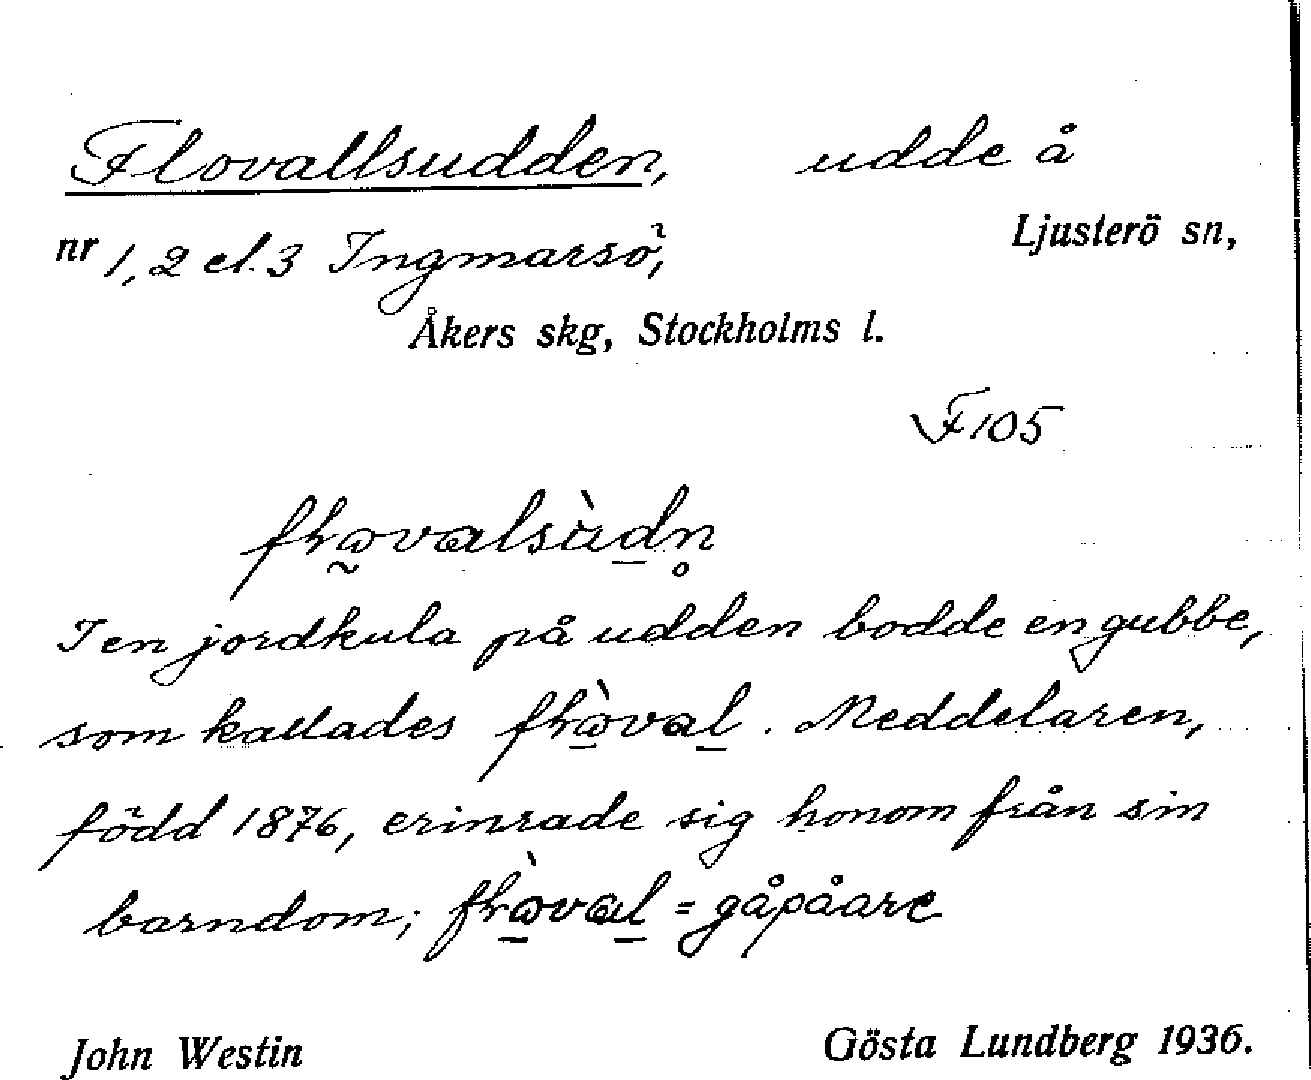 Flovallsudden, udde å
nr 1, 2 el. 3 Ingmarsö, Ljusterö sn,
Åkers skg, Stockholms l.
F 105
I en jordkula på udden bodde en gubbe,
som kallades . Meddelaren,
född 1876, erinrade sig honom från sin
barndom; = gåpåare
John Westin Gösta Lundberg 1936.